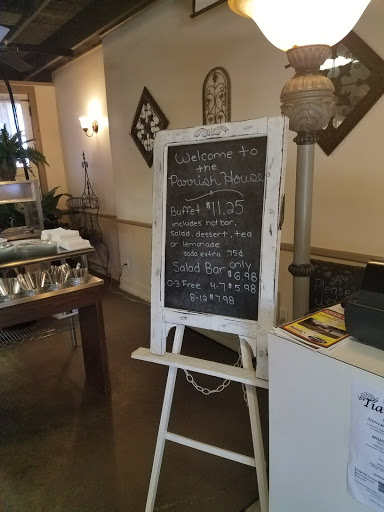 Welcome to
the
Parrish House
Buffet $11.25
includes hotbar,
salad, dessert, tea
or lemonade
soda extra .75¢
Salad Bar only
$6.98
0-3 Free 4-7 $5.98
8-12 $7.98
Please